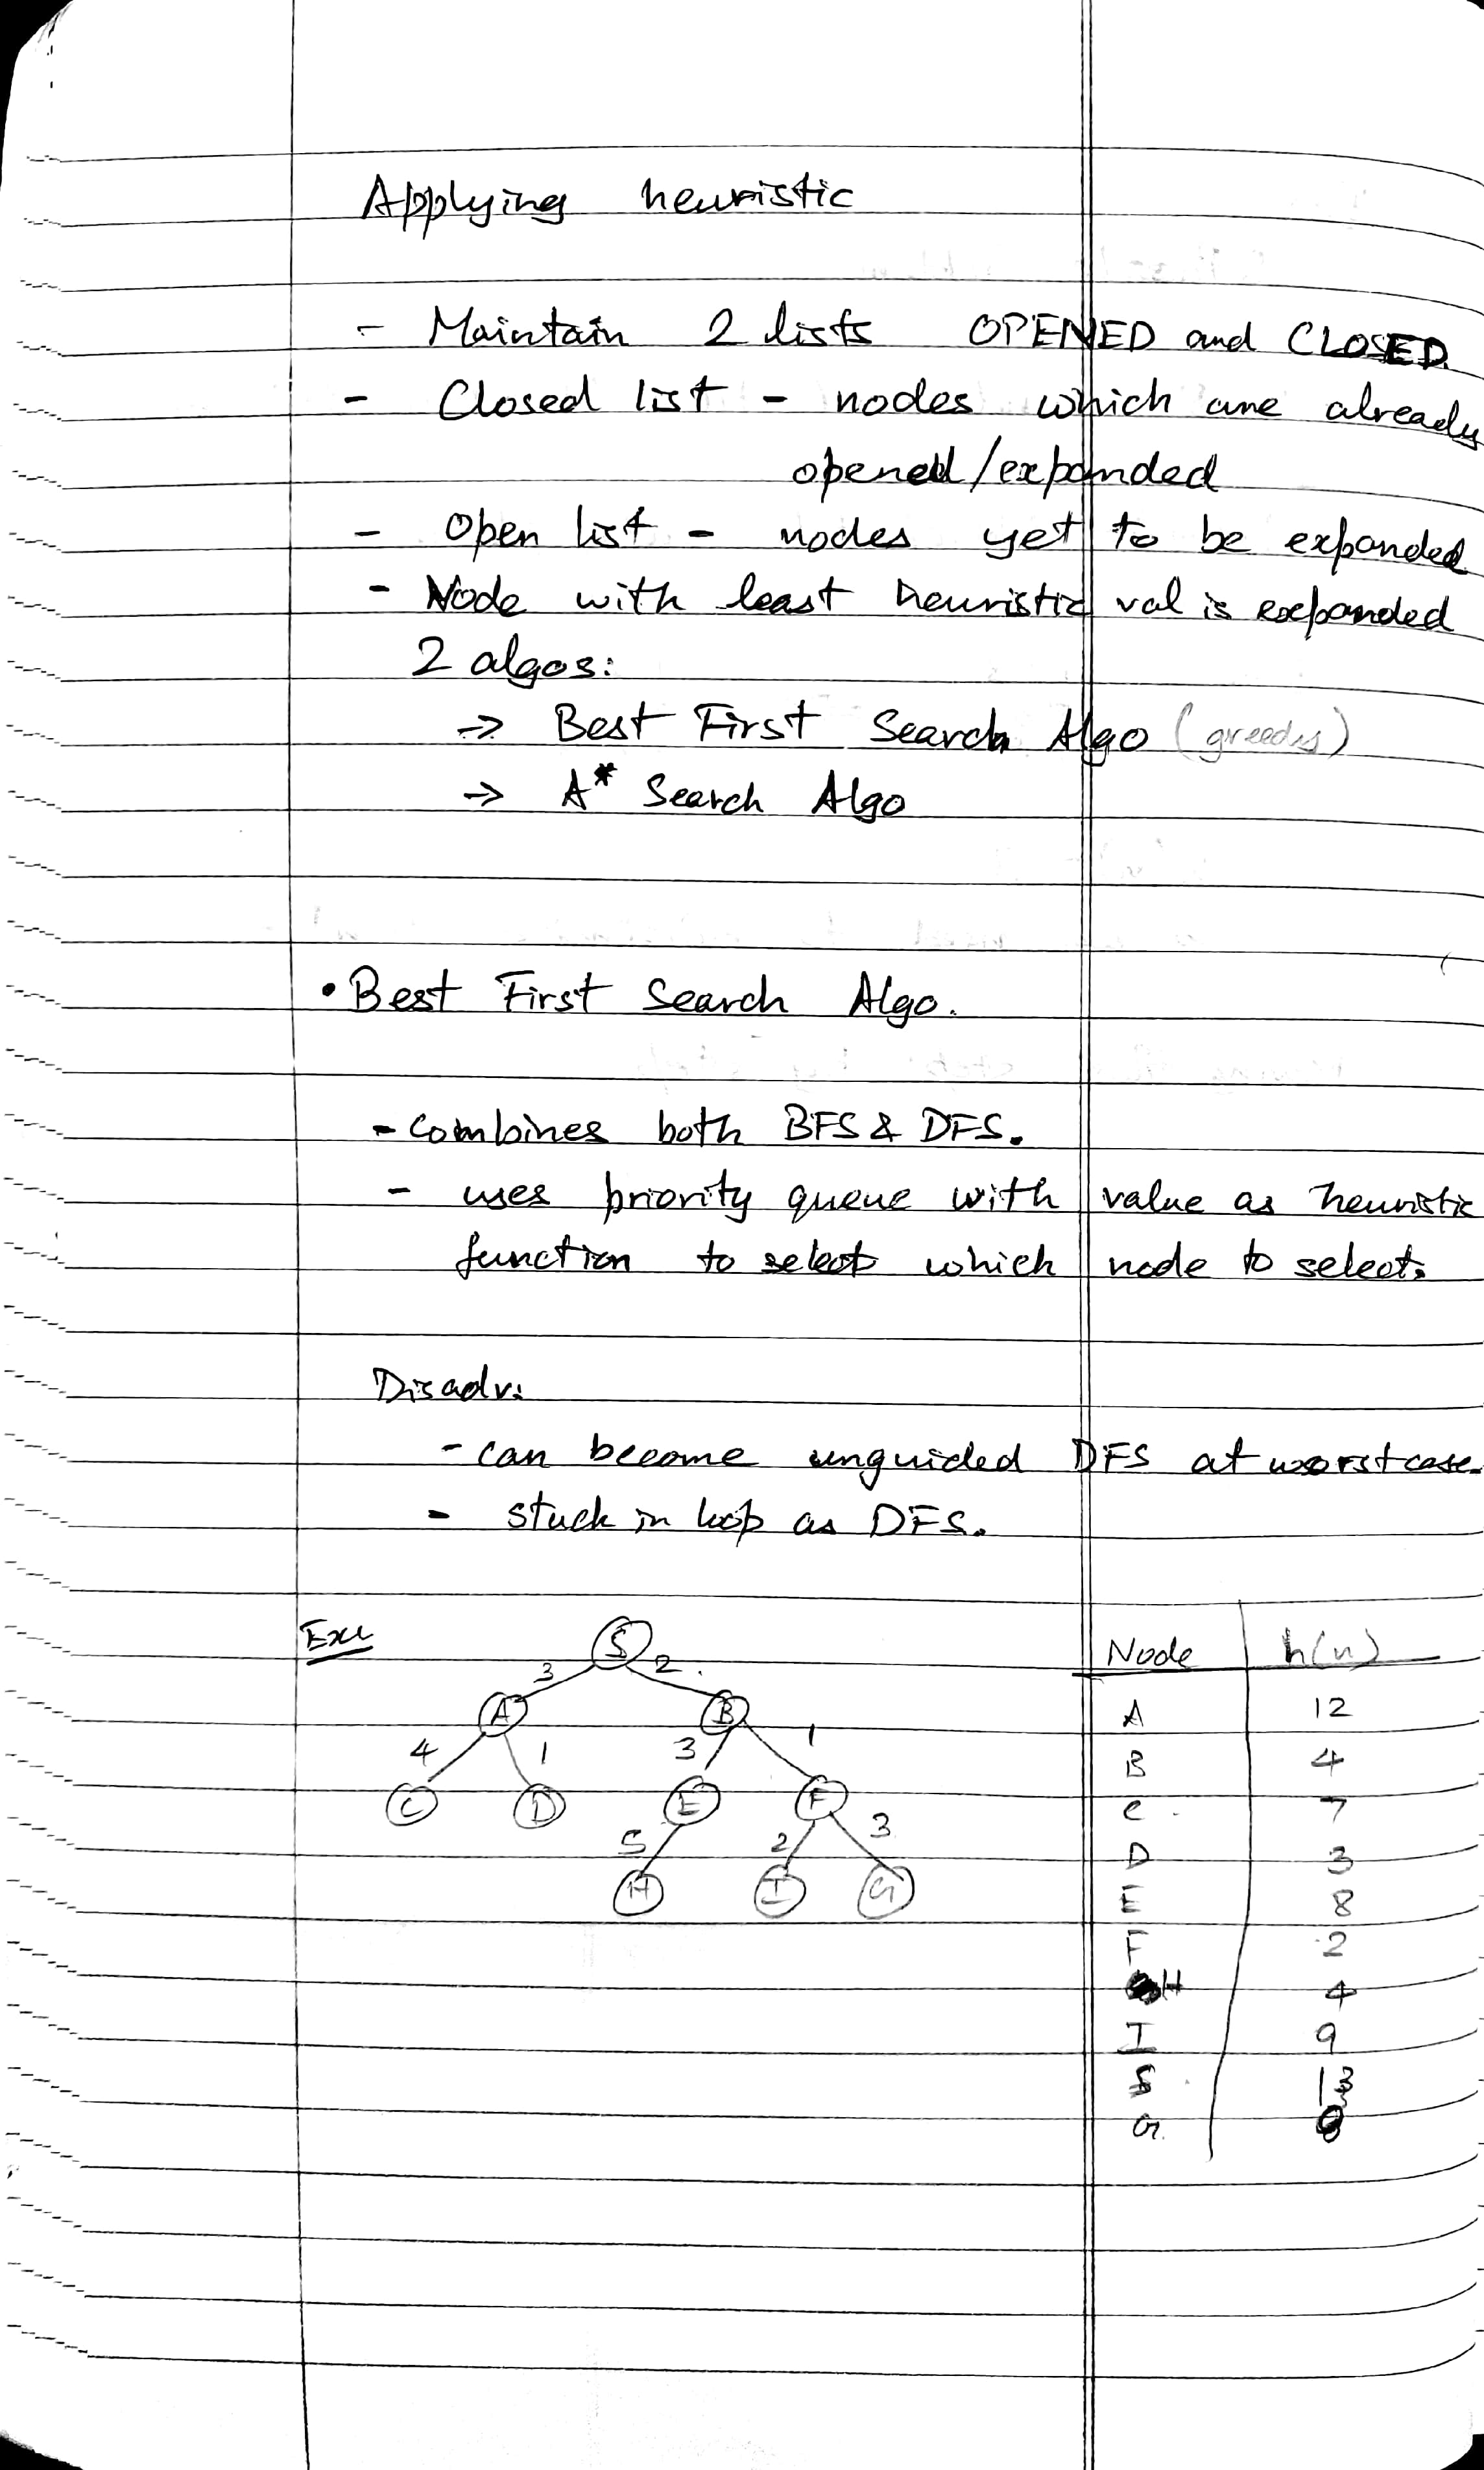 Applying heuristic
- Maintain 2 lists OPENED and CLOSED.
- Closed list - nodes which are already
opened/expanded
- Open list - nodes yet to be expanded
- Node with least heuristic val is expanded
2 algos:
→ Best First Search Algo (greedy)
→ A* Search Algo
• Best First Search Algo.
- combines both BFS & DFS.
- uses priority queue with value as heuristic
function to select which node to select.
Disadv:
- can become unguided DFS at worst case.
- stuck in loop as DFS.
Ex
S
3 2
A B
4 1 3 1
C D E F
5 2 3
H I G
Node h(n)
A 12
B 4
C 7
D 3
E 8
F 2
H 4
I 9
S 13
G 0